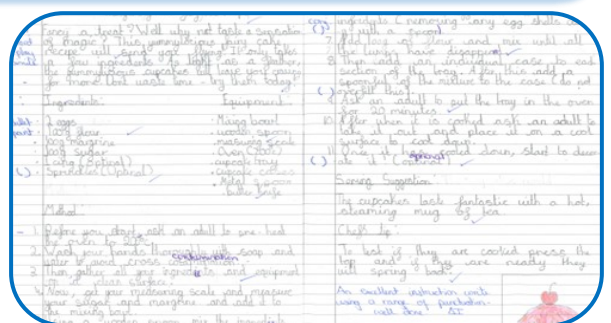 Fancy a treat? Well why not taste a sensation
of magic? This yummylicious bun cake
recipe will send you flying! It only takes
a few ingredients. As light as a feather,
the yummylicious cupcakes will leave your
for more. Dont waste time - try them today!
Ingredients:
2 eggs
100g flour
100g margrine
100g sugar
Icing (Optical)
Sprinkles (Optical)
Equipment:
Mixing bowl
wooden spoon
measuring scale
Oven
cupcake tray
cupcake cases
Metal spoon
butter knife
Method:
1. Before you start, ask an adult to pre-heat
the oven to
2. Wash your hands thoroughly with soap and
water to avoid cross contamination
3. Then gather all your ingredients and equipment
on a clear surface.
4. Now, get your measuring scale and measure
your sugar and margrine and add it to
the mixing bowl.
a wooden spoon mix the ingredients
ingredients (removing any egg shells
with a spoon)
7. Add of flour and mix until all
the lumps have disappear
8. Then add an individual case to each
section of the tray. After this add a
spoonful of the mixture to the case (do not
overfill this)
9. Ask an adult to put the tray in the oven
for 20 minutes
10. After when it is cooked ask an adult to
take it out and place it on a cool
surface to cool down.
11. Once it has cooled down, start to decor
ate it (optional)
Serving Suggestion
The cupcakes taste fantastic with a hot,
steaming mug of tea.
Chef's tip:
To test if they are cooked press the
top and if they are ready they
will spring back
An excellent instruction
using a range of punctuation -
well done